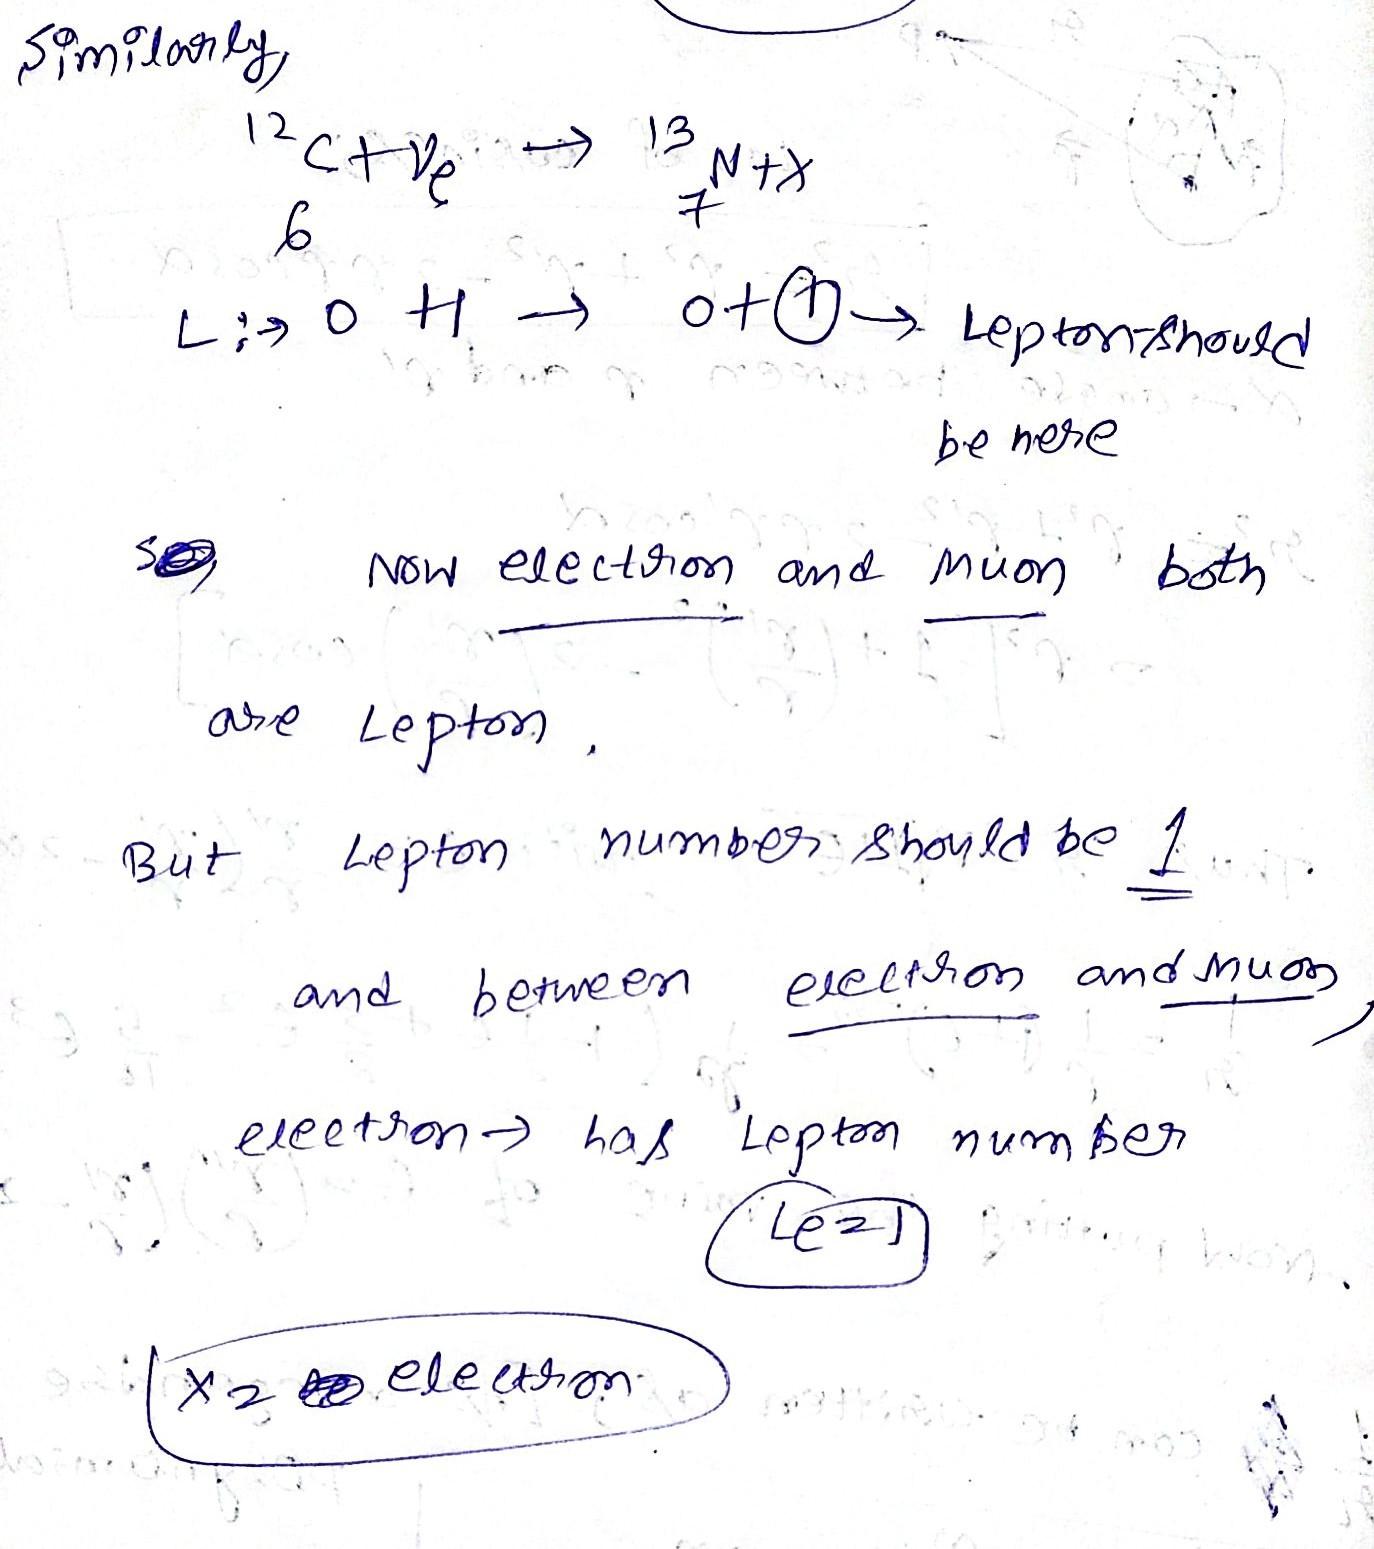 Similarly,
¹²₆C + νₑ → ¹³₇N + X
L :→ 0 +1 → 0 + (+1) → Lepton should
be here
so, Now electron and Muon both
are Lepton.
But Lepton number should be 1
and between electron and Muon,
electron → has Lepton number
Le=1
X = electron